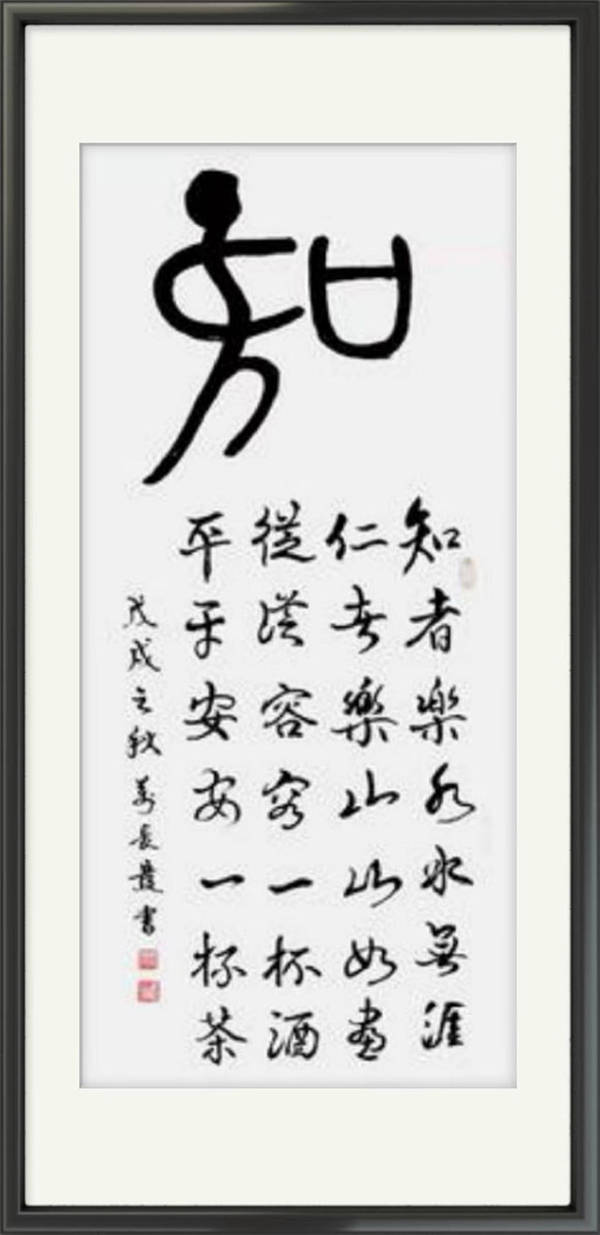 知
知者樂水水無涯
仁者樂山山如畫
從從容容一杯酒
平平安安一杯茶
戊戌之秋萬長書